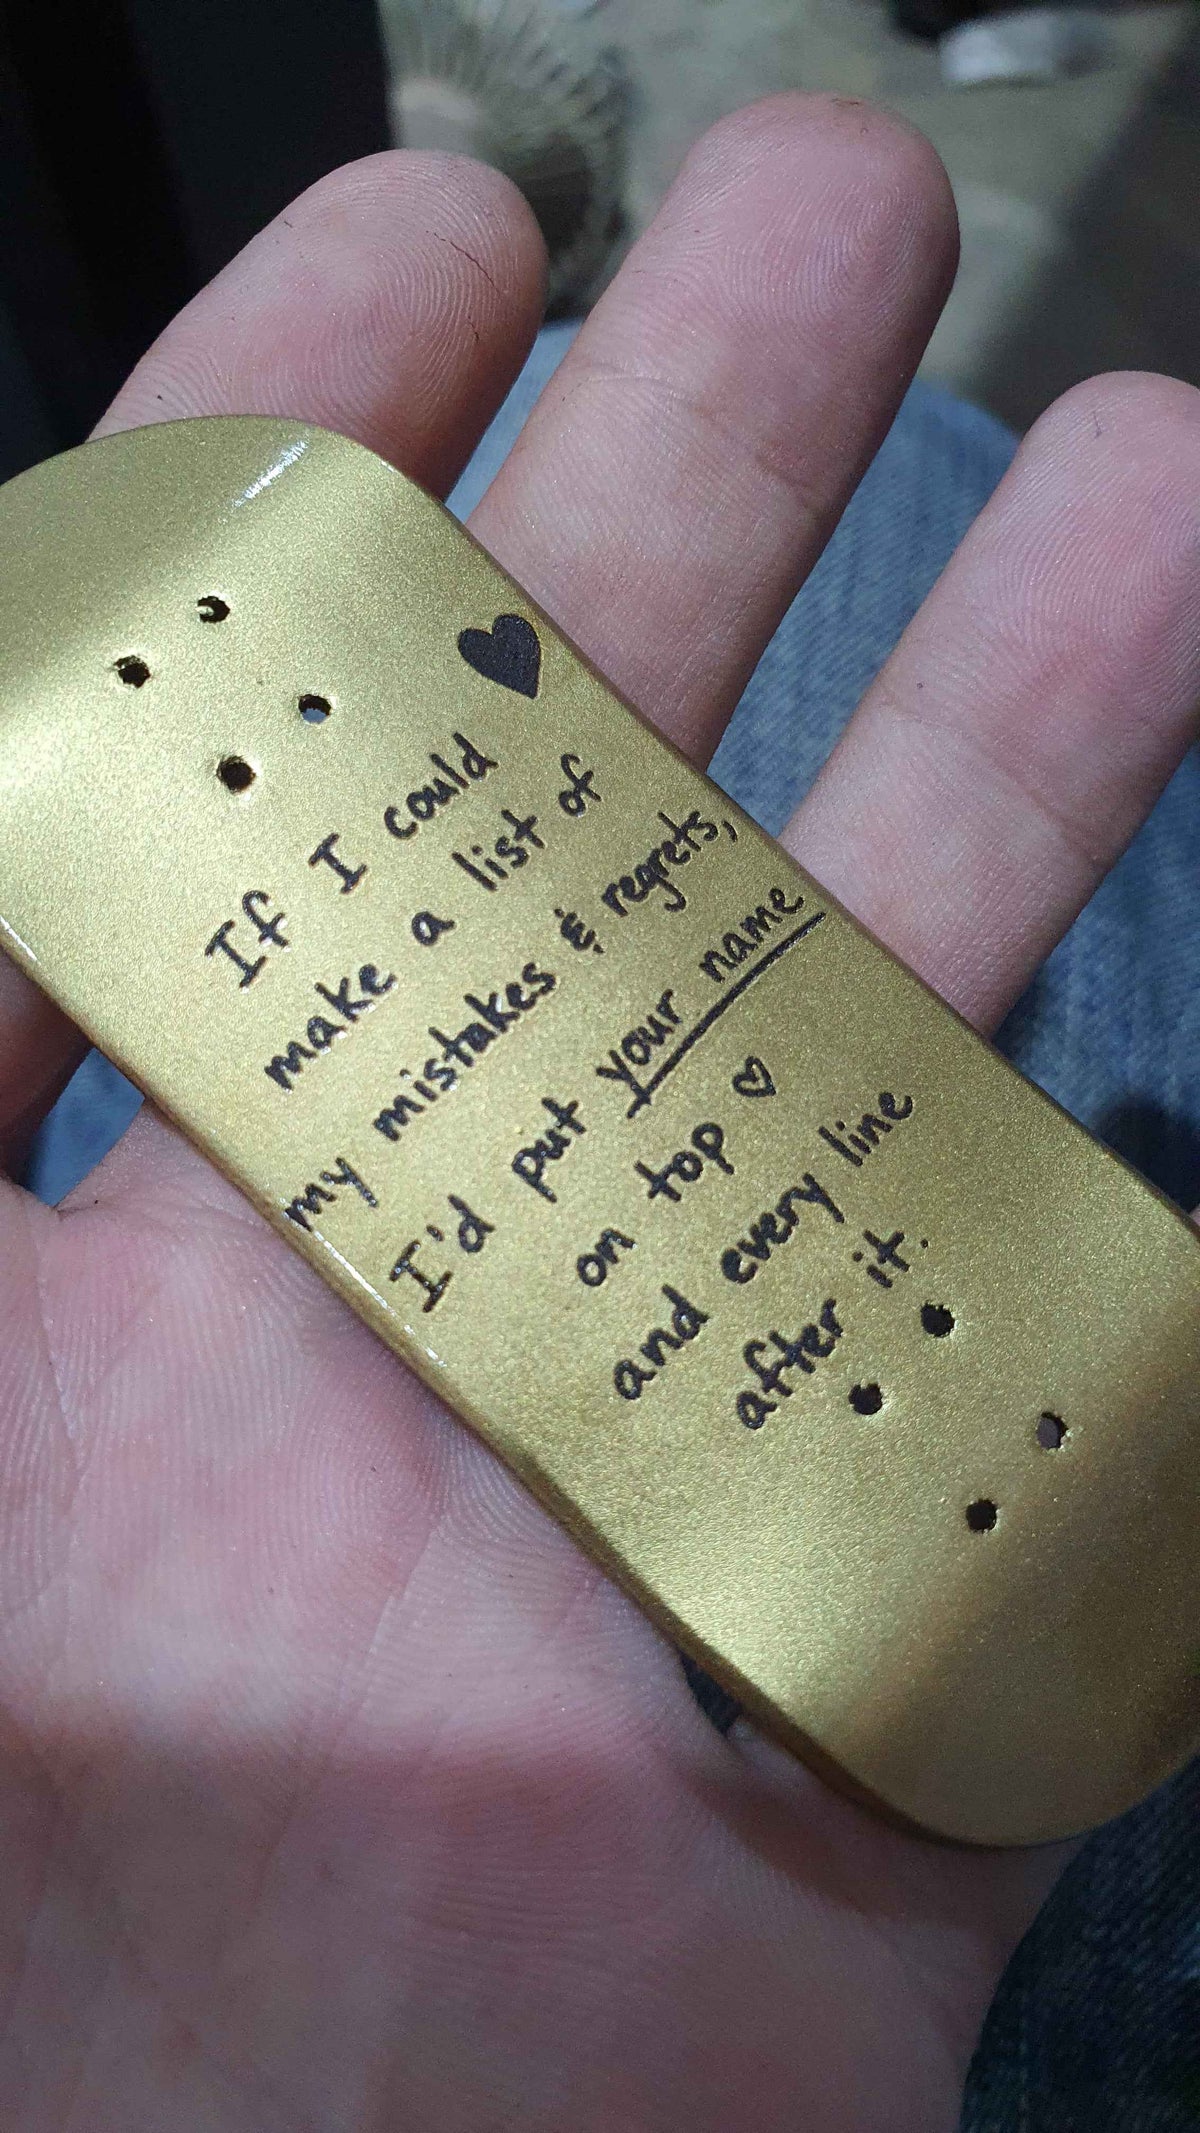 If I could
make a list of
my mistakes & regrets,
I'd put your name
on top ♡
and every line
after it.